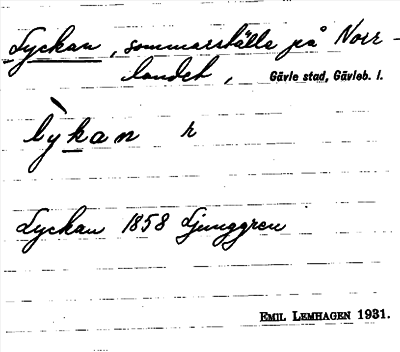 Lyckan, sommarställe på Norr-
landet, Gävle stad, Gävleb. l.
lỳkan r
Lyckan 1858 Ljunggren
EMIL LEMHAGEN 1931.